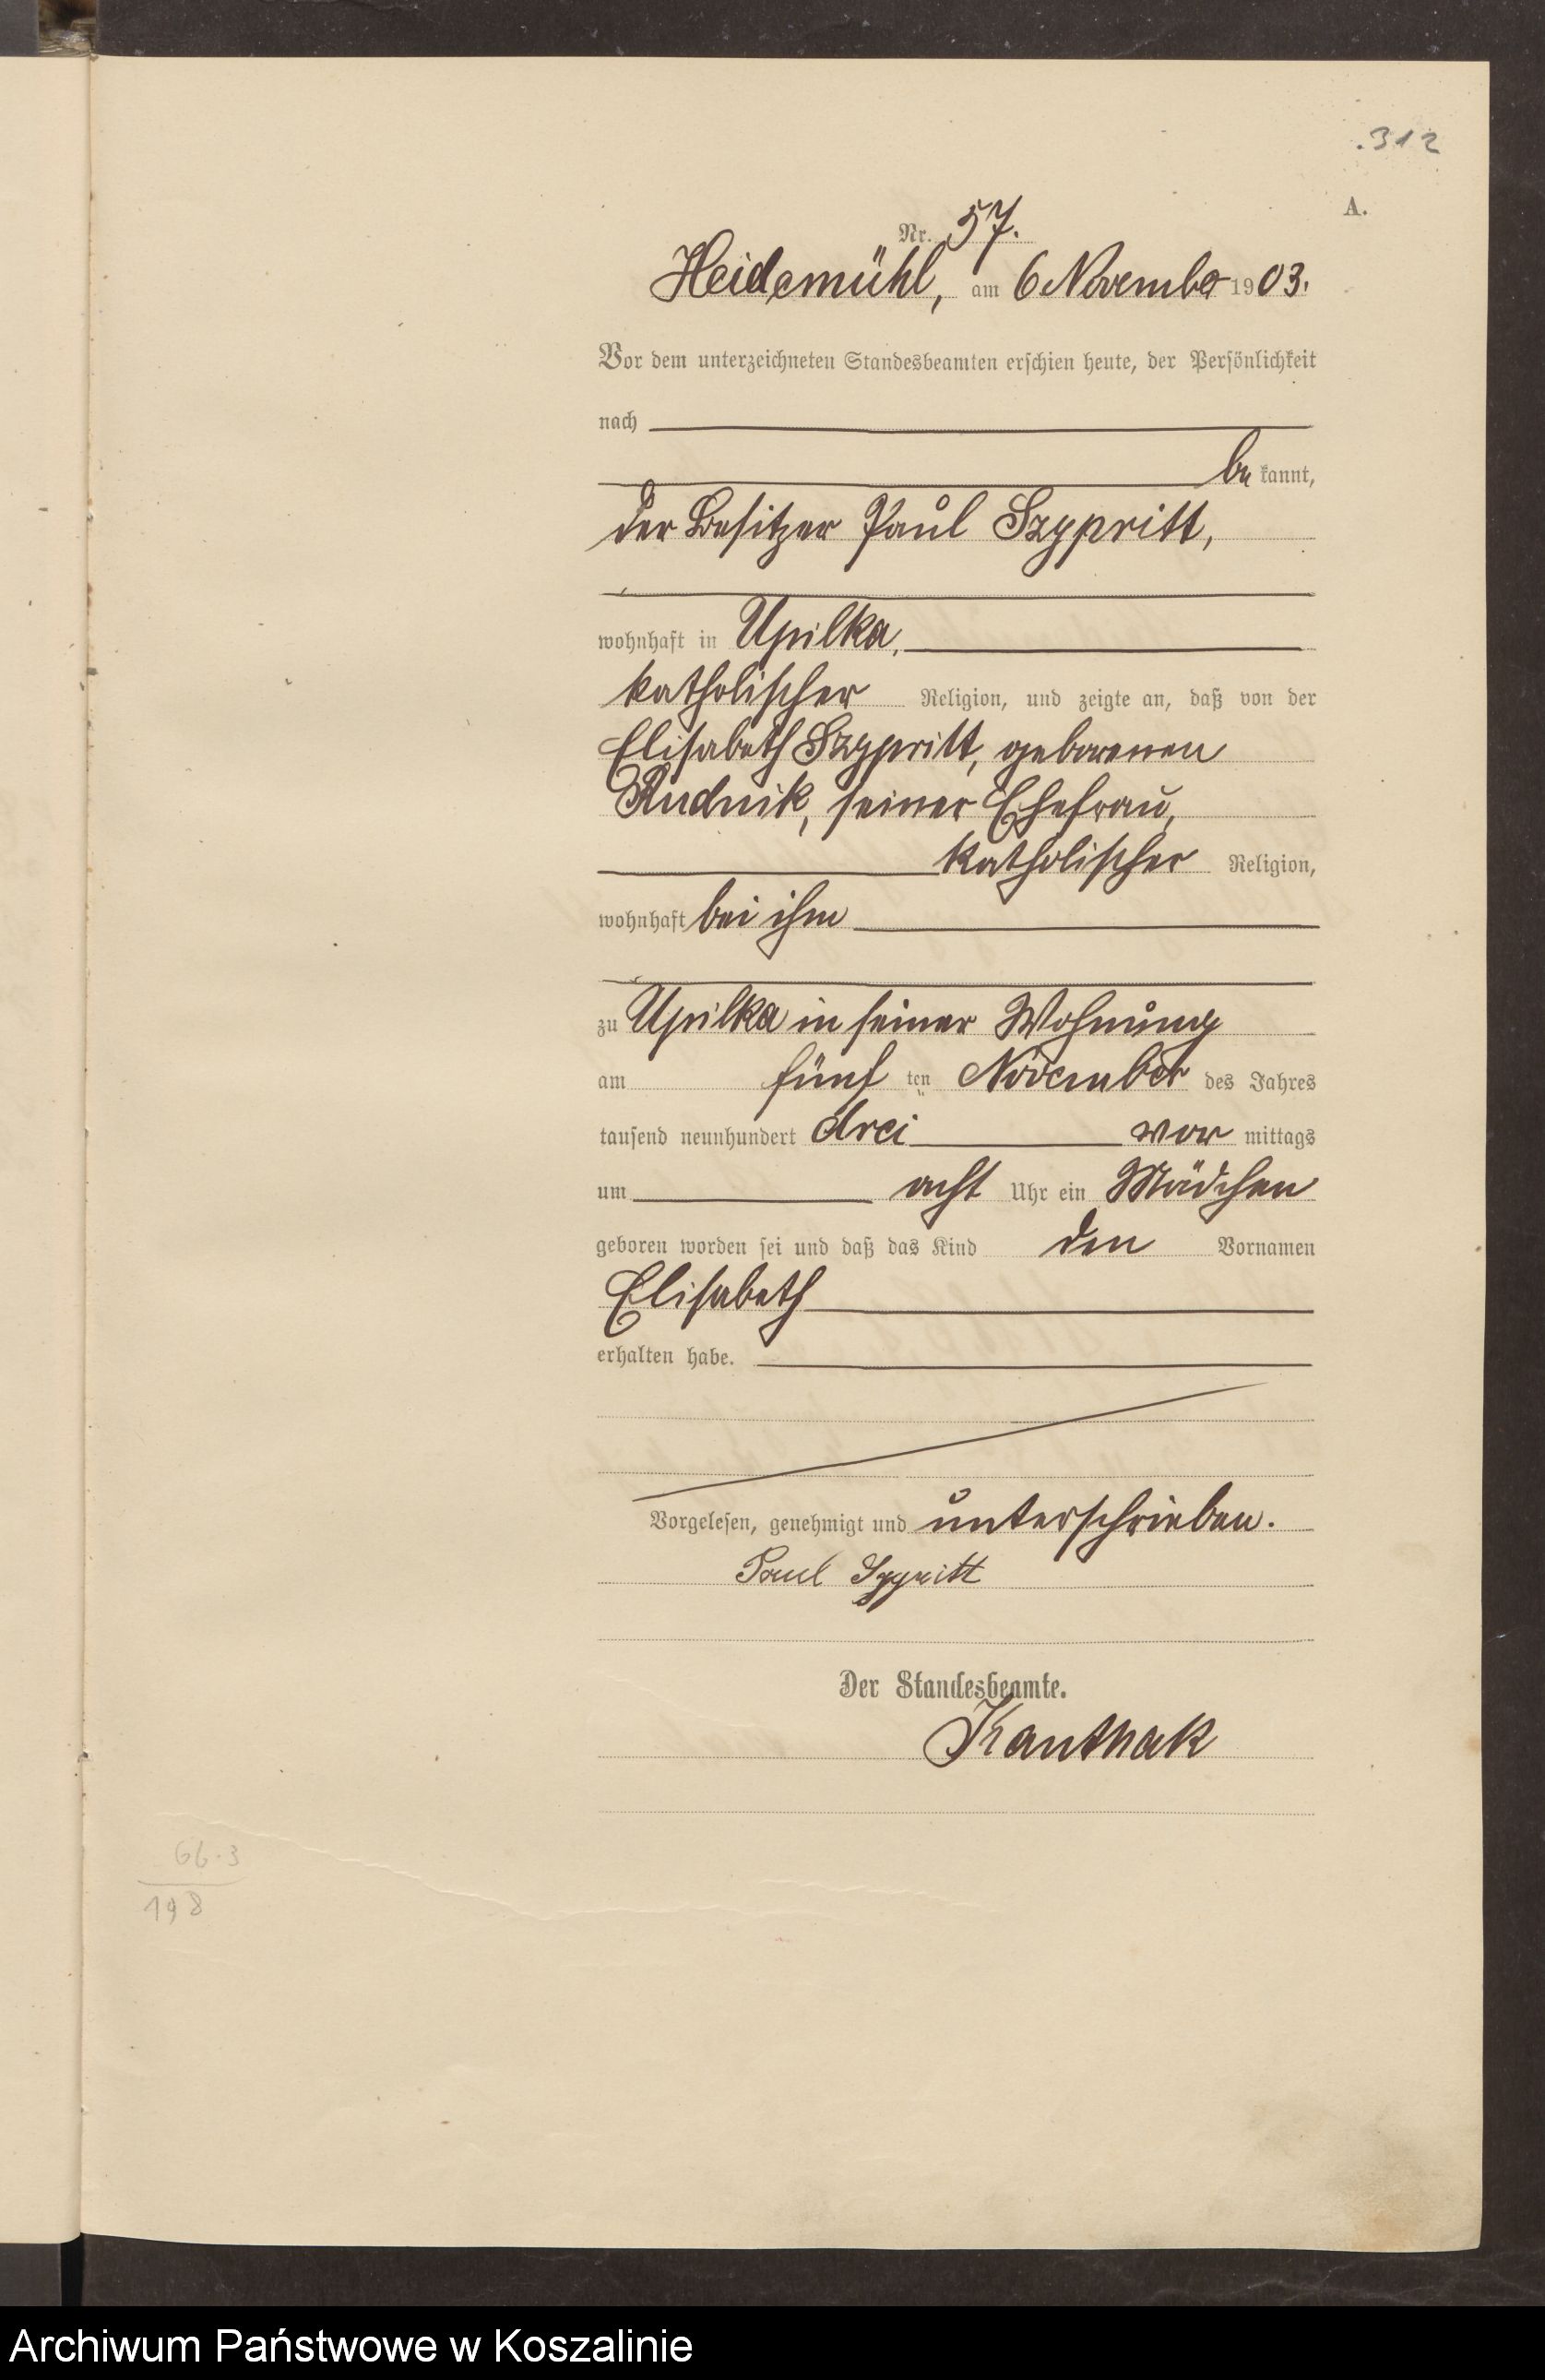 .312
A.
Nr. 57.
Heidemühl, am 6 November 1903.
Vor dem unterzeichneten Standesbeamten erschien heute, der Persönlichkeit
nach
be kannt,
der Besitzer Paul Szypritt,
wohnhaft in Upilka,
katholischer Religion, und zeigte an, daß von der
Elisabeth Szypritt, geborenen
Rudnik, seiner Ehefrau,
katholischer Religion,
wohnhaft bei ihm
zu Upilka in seiner Wohnung
am fünf ten November des Jahres
tausend neunhundert drei vor mittags
um acht Uhr ein Mädchen
geboren worden sei und daß das Kind den Vornamen
Elisabeth
erhalten habe.
Vorgelesen, genehmigt und unterschrieben.
Paul Szypritt
Der Standesbeamte.
Kanthak
66.3
198
Archiwum Państwowe w Koszalinie